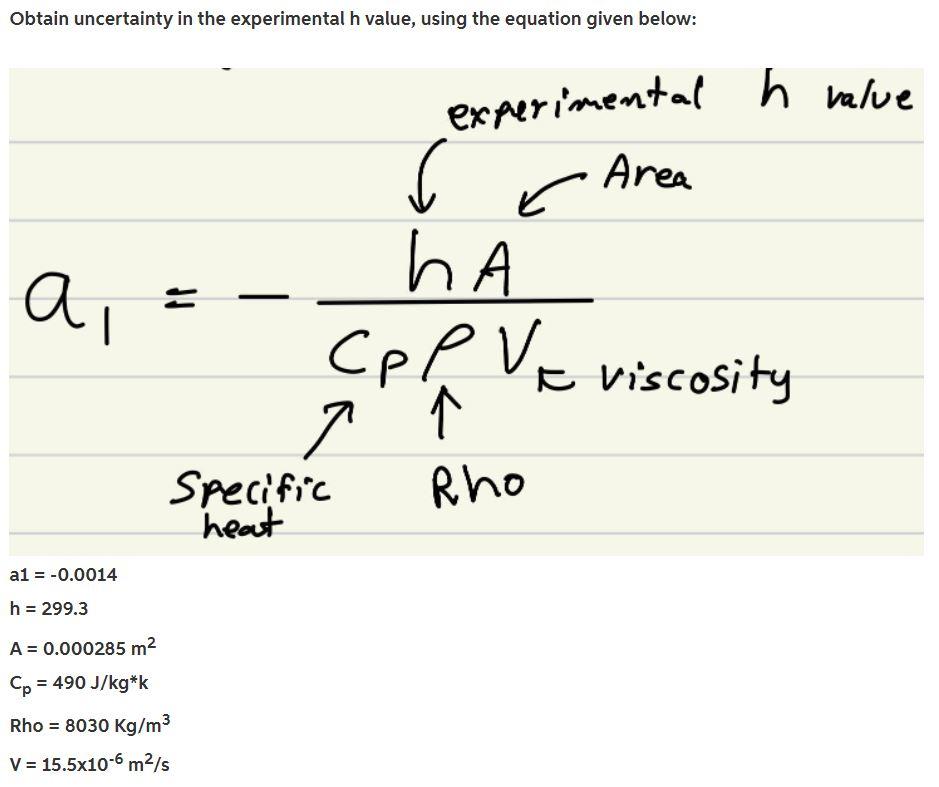 Obtain uncertainty in the experimental h value, using the equation given below:
experimental h value
Area
a₁ = - hA
CpρV viscosity
Specific Rho
heat
a1 = -0.0014
h = 299.3
A = 0.000285 m²
Cp = 490 J/kg*k
Rho = 8030 Kg/m³
V = 15.5x10⁻⁶ m²/s